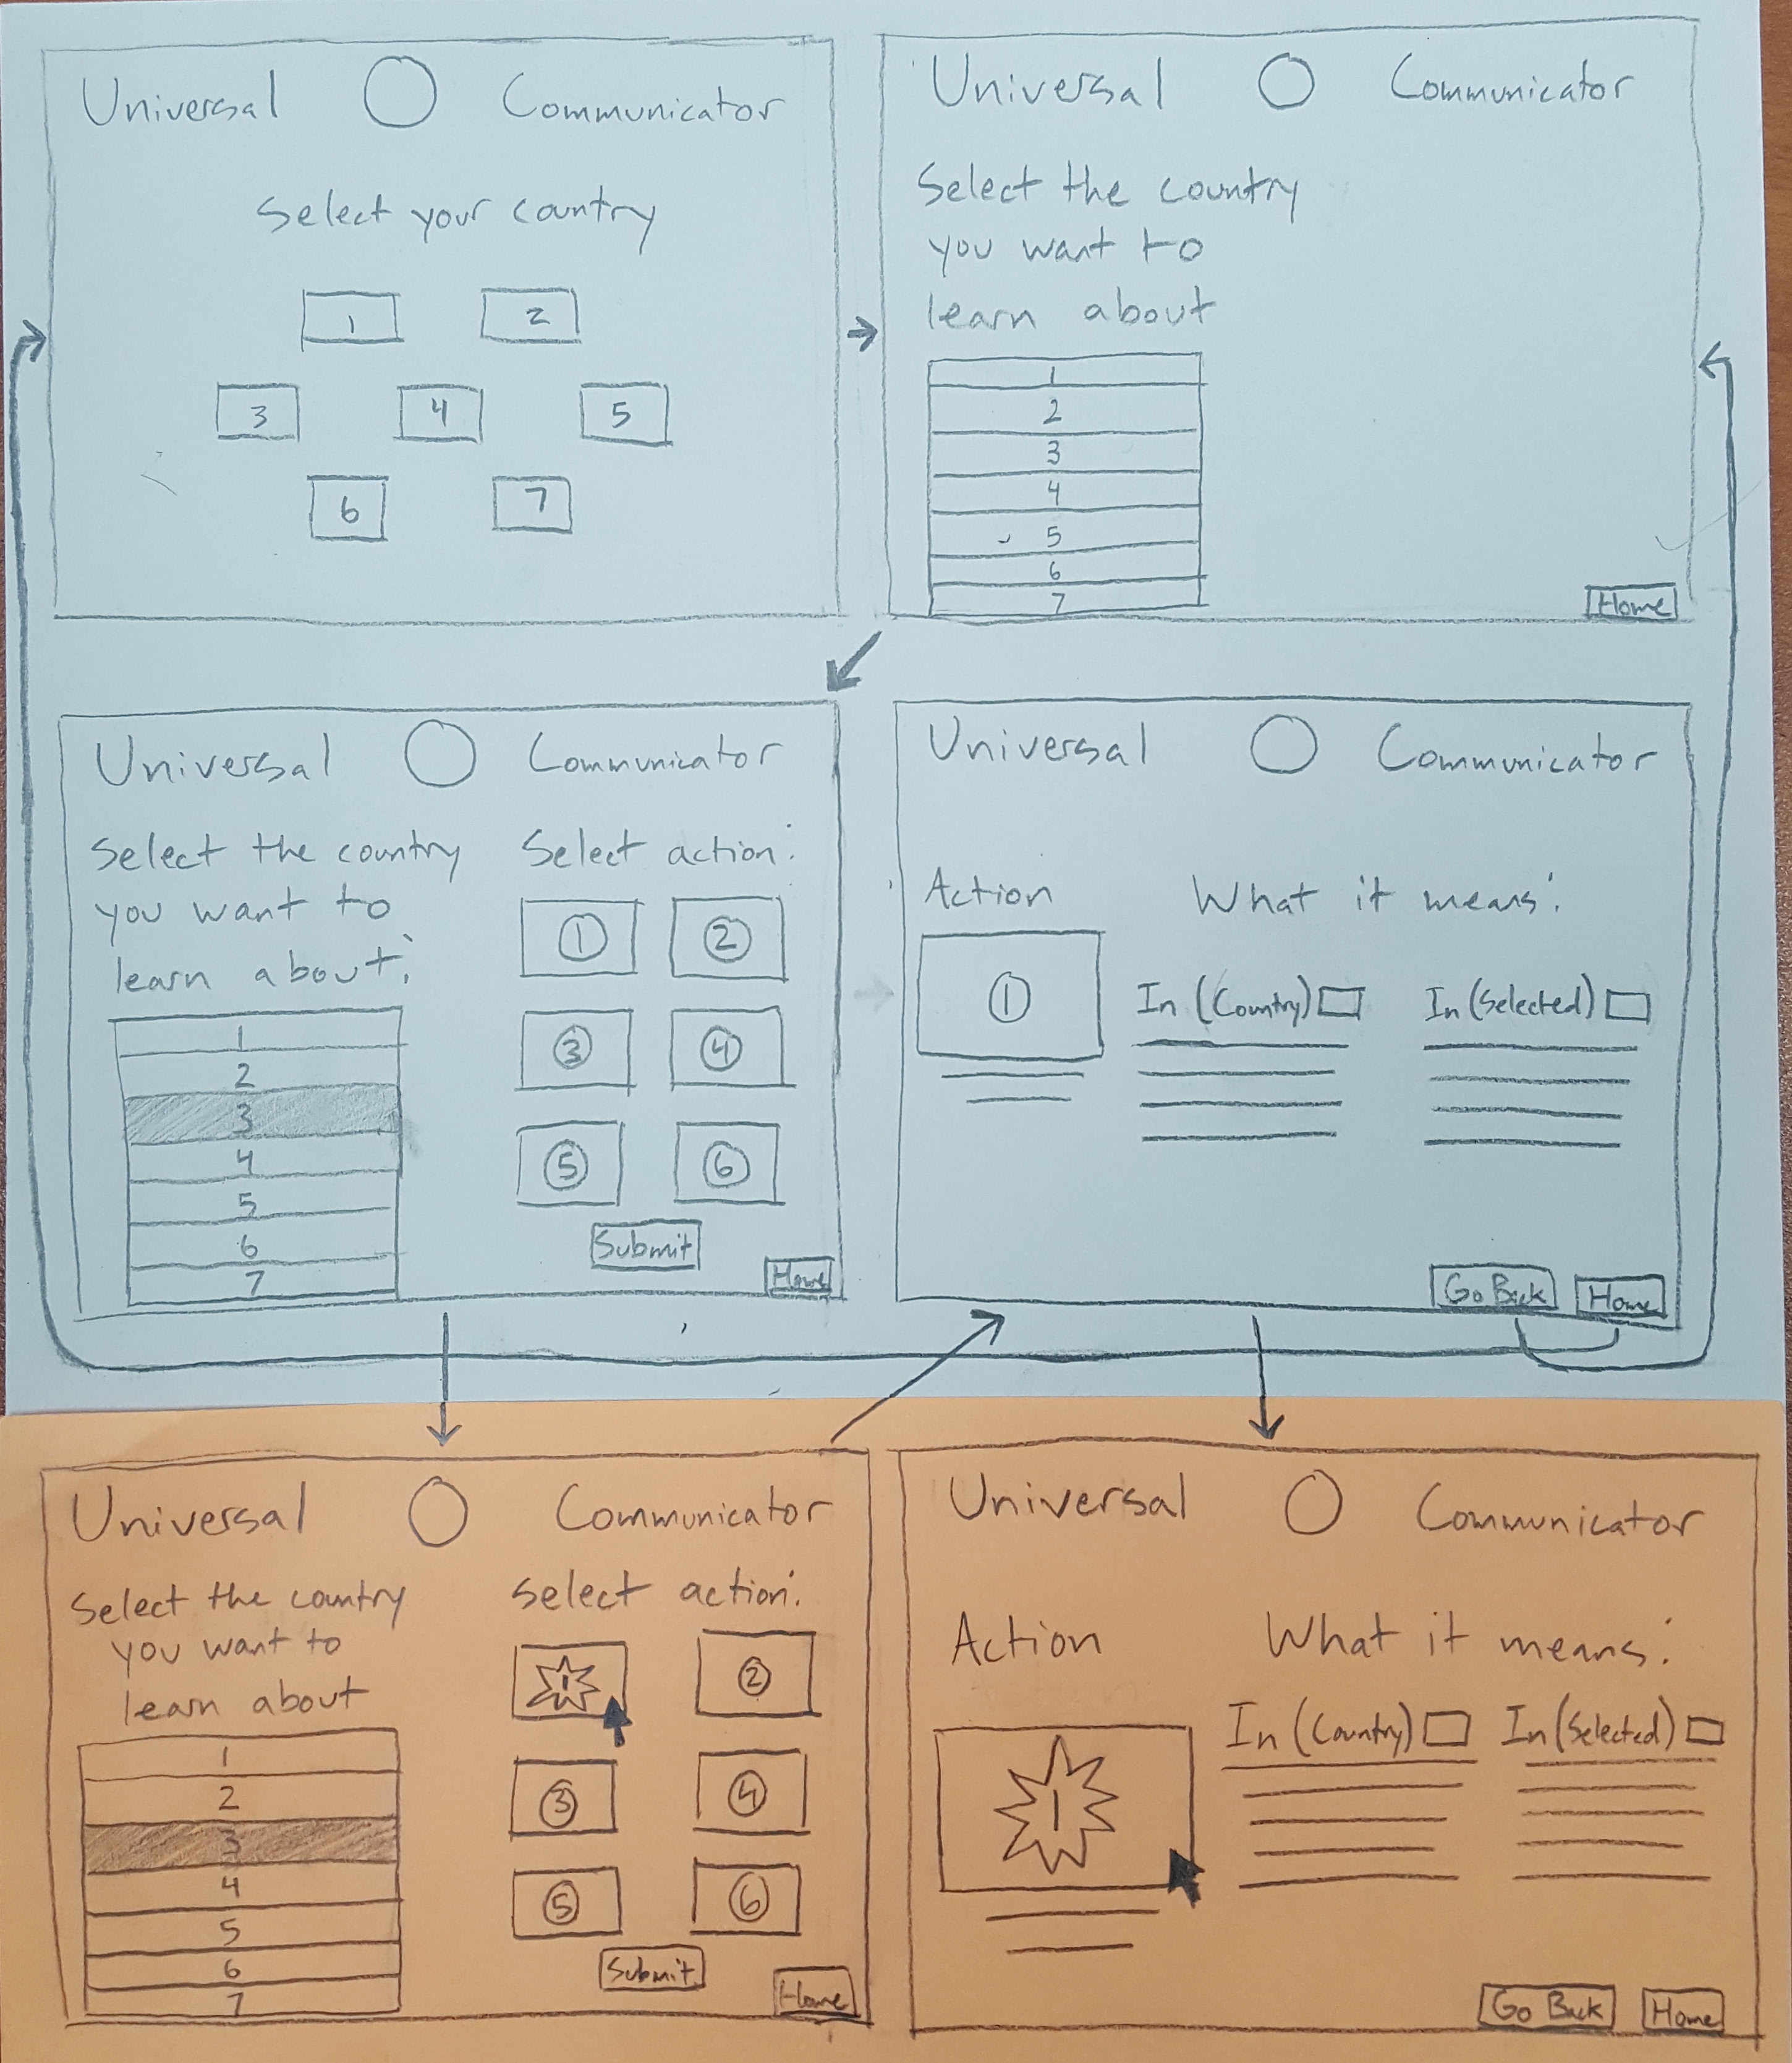 Universal Communicator
Select your country
1 2
3 4 5
6 7
Universal Communicator
Select the country
you want to
learn about
1
2
3
4
5
6
7
Home
Universal Communicator
Select the country
you want to
learn about:
1
2
3
4
5
6
7
Select action:
1 2
3 4
5 6
Submit
Home
Universal Communicator
Action
1
What it means:
In (Country)
In (Selected)
Go Back
Home
Universal Communicator
Select the country
you want to
learn about
1
2
3
4
5
6
7
select action:
1 2
3 4
5 6
Submit
Home
Universal Communicator
Action
1
What it means:
In (Country)
In (Selected)
Go Back
Home